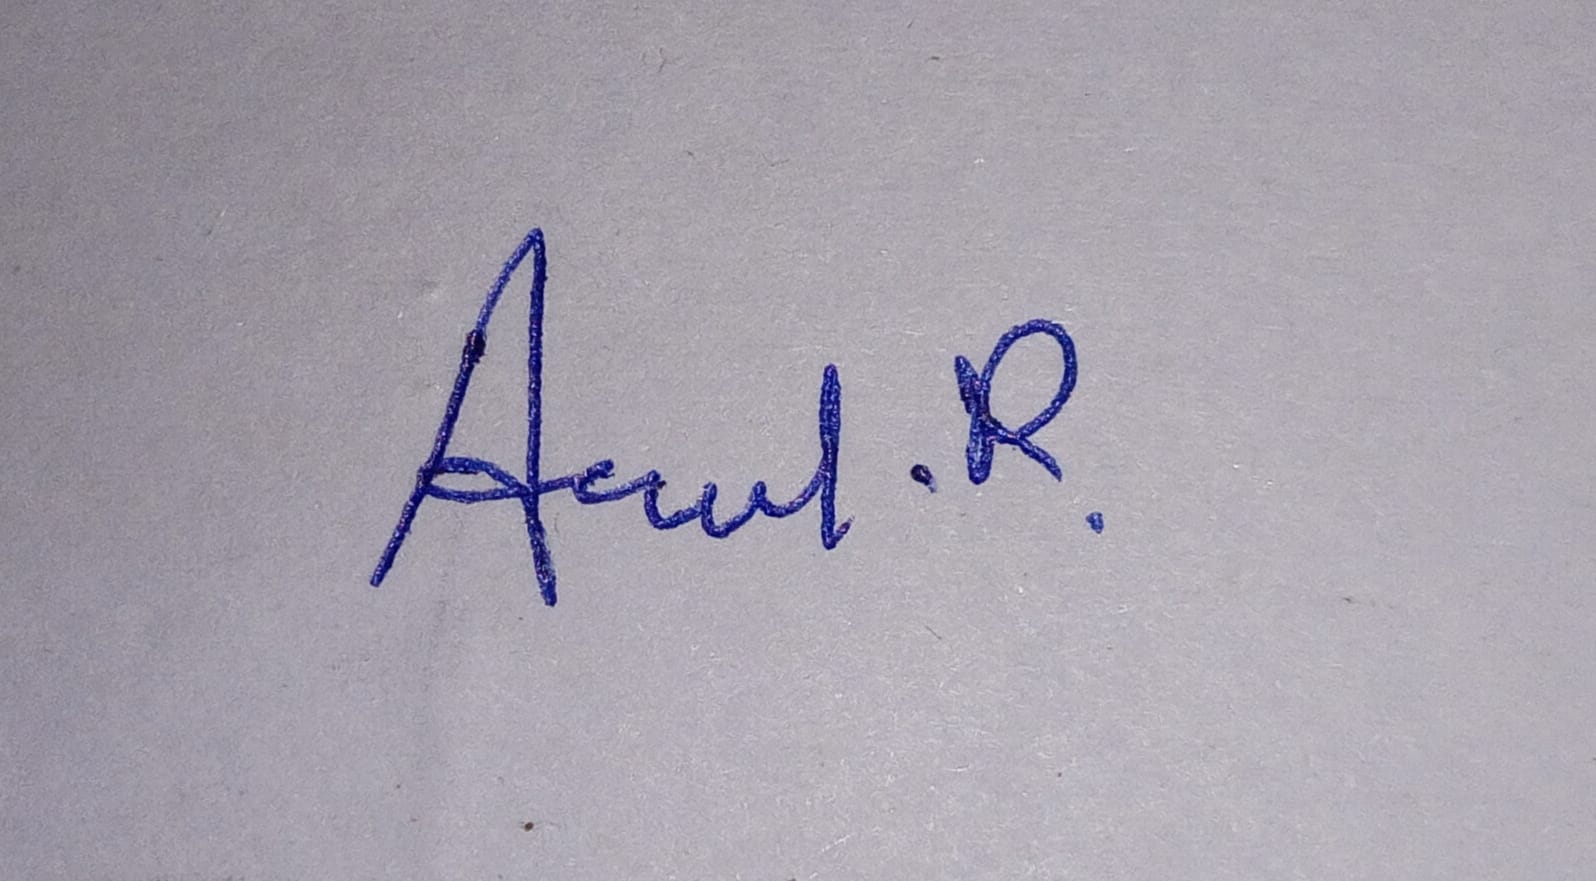 Arul. R.